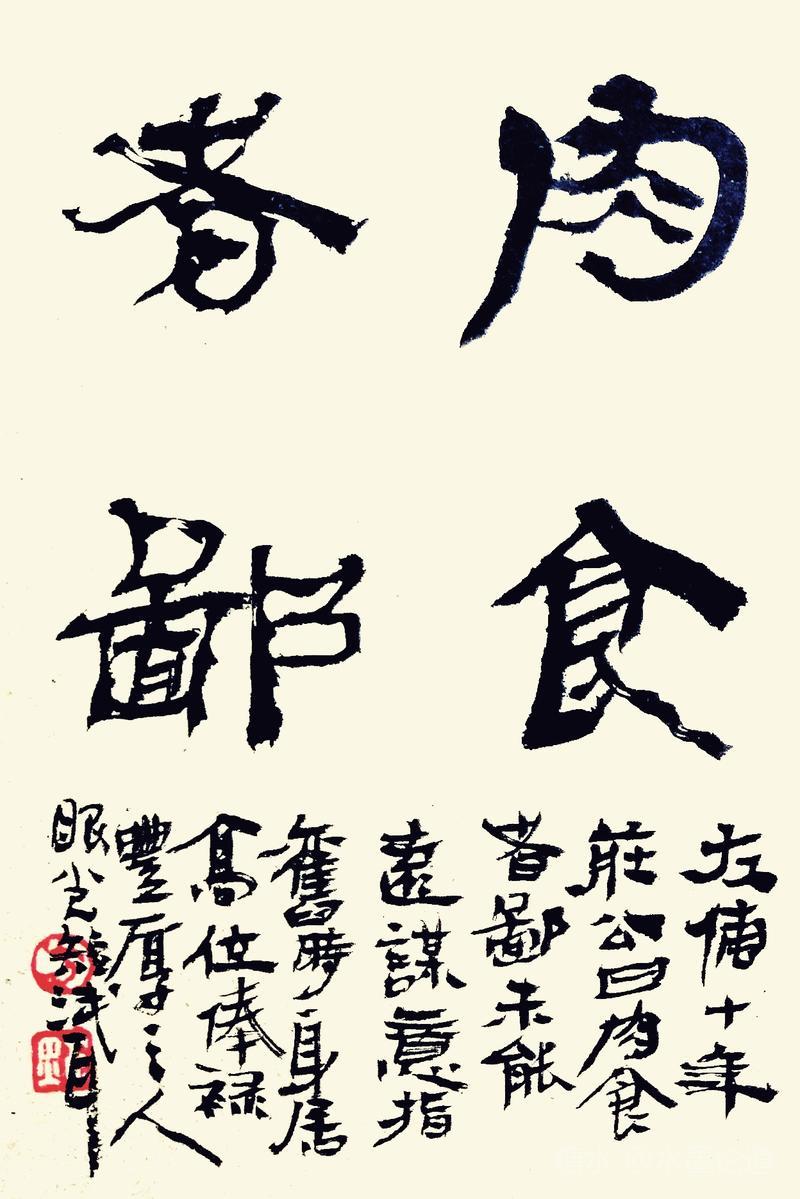 肉食
者鄙
左傳十年
莊公曰肉食
者鄙未能
遠謀意指
舊時身居
高位俸祿
豐厚之人
眼光短淺耳